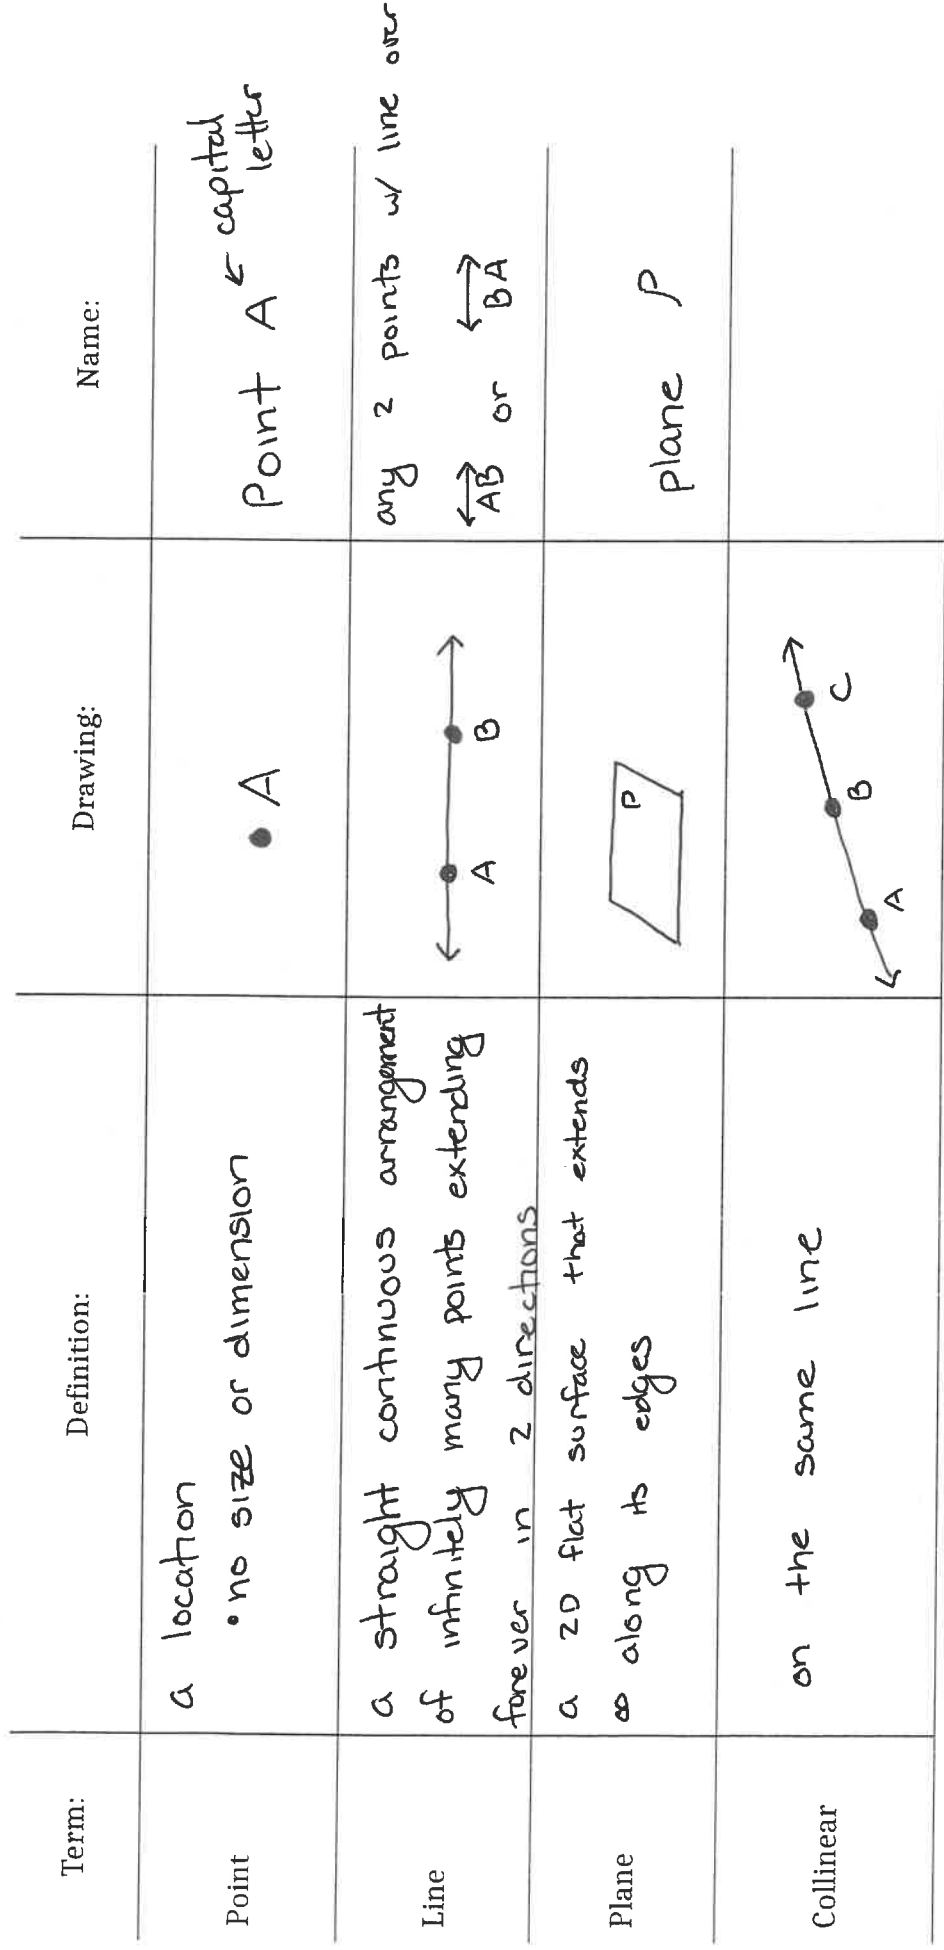 Term:
Definition:
Drawing:
Name:
Point
a location
• no size or dimension
A
Point A ← capital
letter
Line
a straight continuous arrangement
of infinitely many points extending
forever in 2 directions
A B
any 2 points w/ line over
AB or BA
Plane
a 2D flat surface that extends
∞ along its edges
P
plane P
Collinear
on the same line
A B C